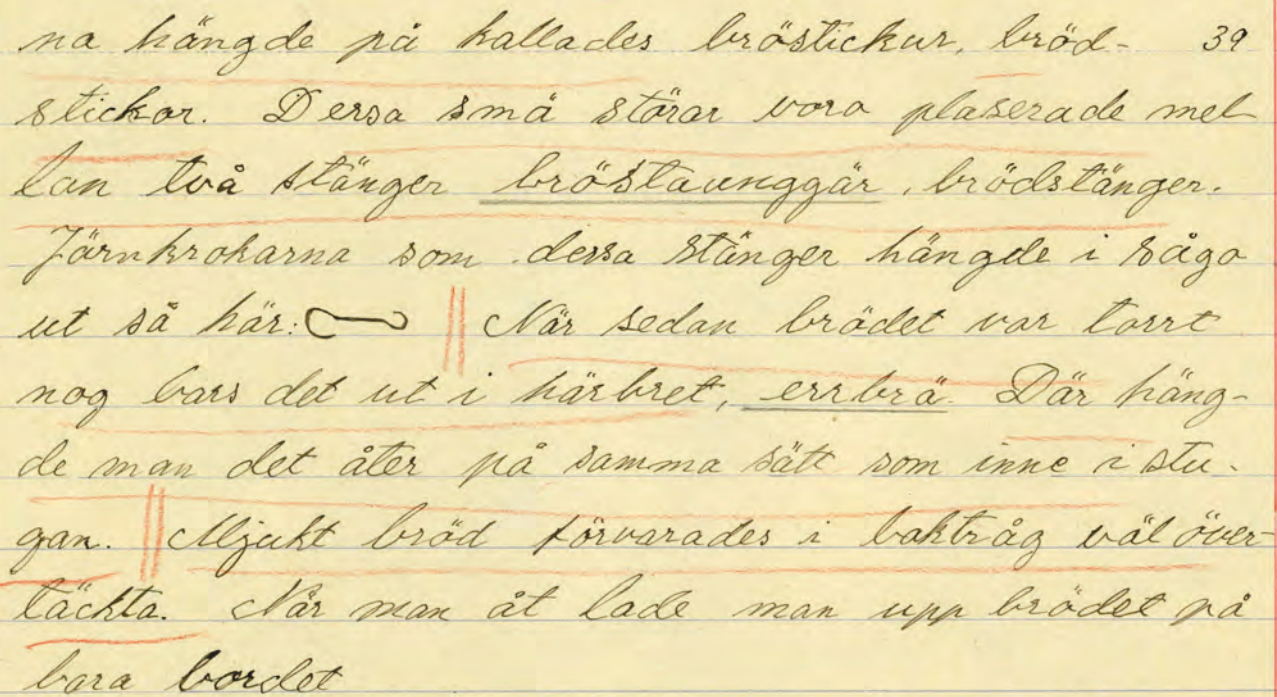 na hängde på kallades bröstickur, bröd- 39
stickor. Dessa små störar voro plaserade mel
lan två stänger bröstaunggär, brödstänger.
Järnkrokarna som dessa stänger hängde i sågo
ut så här: När sedan brödet var torrt
nog bars det ut i härbret, errbrä. Där häng-
de man det åter på samma sätt som inne i stu-
gan. Mjukt bröd förvarades i baktråg väl över-
täckta. När man åt lade man upp brödet på
bara bordet